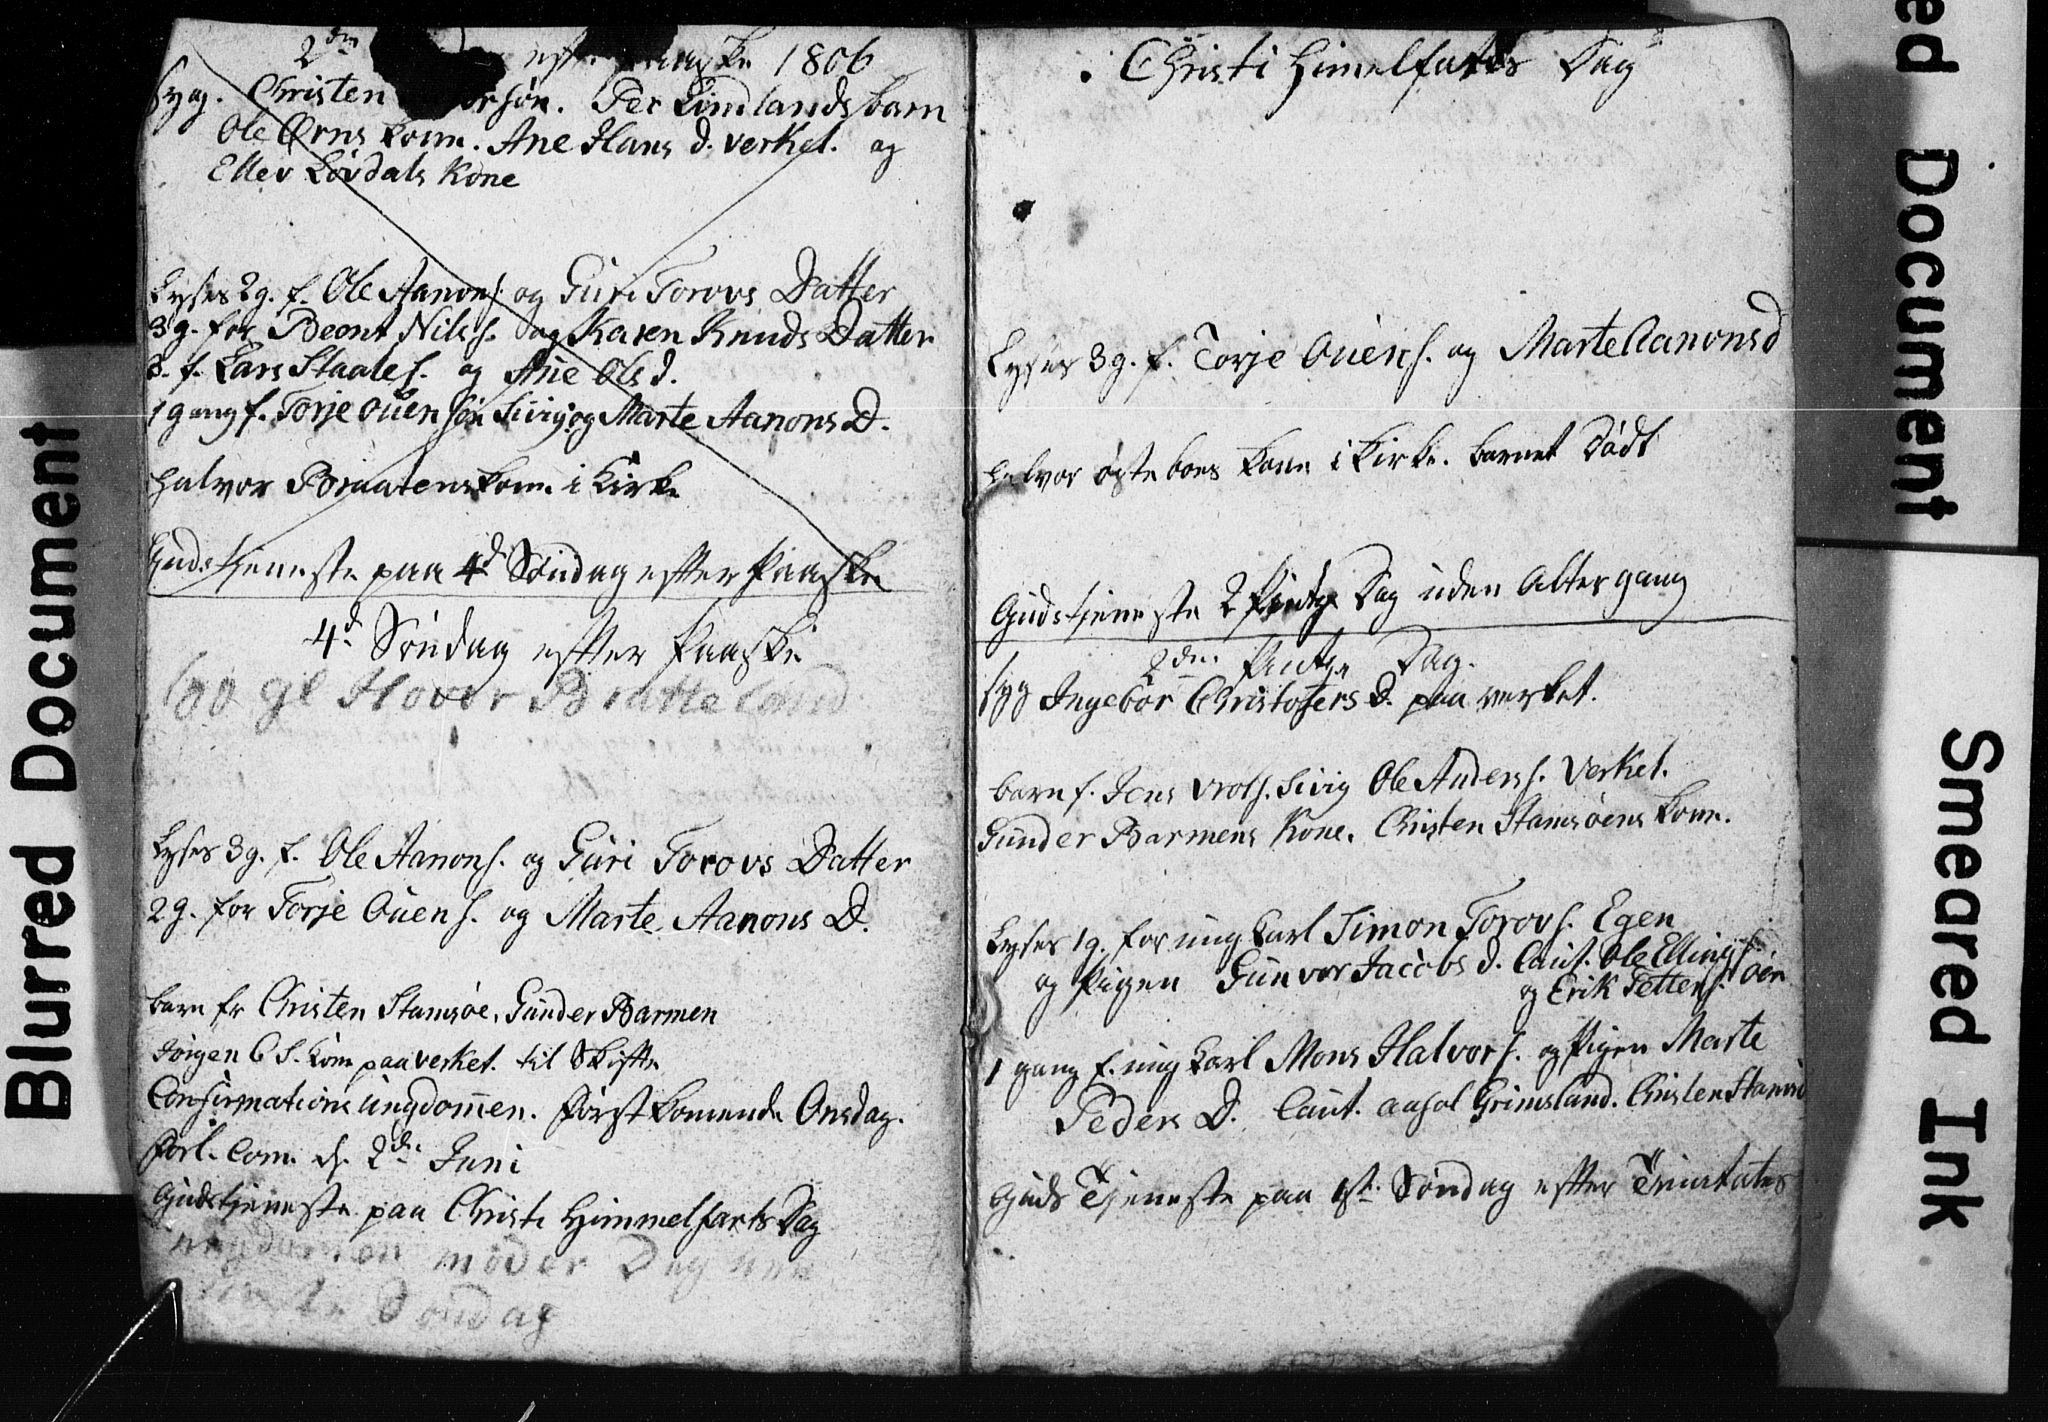 2den efter Paaske 1806
syg. Christen Per Lindlands barn
Ole Ørns kone. Ane Hans d. verket. og
Ellev Løvdals Kone
Lyses 2g. f. Ole Aanons. og Guri Torovs Datter
3g. for Beent Nilss. og Karen Knuds Datter
3. f. Lars Staales. og Ane Ols d.
1 gang f. Torje Ouensøn og Marte Aanons D.
Halvor Braatens kone i Kirke
Gudstjeneste paa 4d Søndag efter Paaske
4d Søndag efter Paaske
gl Hover Bratteland
Lyses 3g. f. Ole Aanons. og Guri Torovs Datter
2g. for Torje Ouens. og Marte Aanons D.
barn fr Christen Stamsøe, Gunder Barmen
Jørgen C S. kone paa verket til Skifte
Confirmations ungdommen. først komende Onsdag.
Forl. Com. d. 2de Juni
Gudstjeneste paa Christi Himmelfarts Dag
ungdommen møder Dag
Søndag
Christi Himelfarts Dag
Lyses 3g. f. Torje Ouens. og Marte Aanonsd
Halvor øgteboes kone i Kirke. barnet Dødt
Gudstjeneste 2 Pintze Dag uden Altergang
2den Pintze Dag.
syg Ingebor Christofers D. paa verket.
barn f. Jens Ole Anderss. Verket.
Gunder Barmens Kone. Christen Stamsøens kone.
Lyses 1g. for ung Karl Simon Torovs. Egen
og Pigen Gunvor Jacobs d. Caut. Ole Ellings.
og Erik Tettens. Øen
1 gang f. ung Karl Mons Halvors. og Pigen Marte
Peders D. Caut. Grimsland. Christen
Guds Tjeneste paa 1ste Søndag efter Trinitates
Blurred Document
ed Document
Smeared Ink